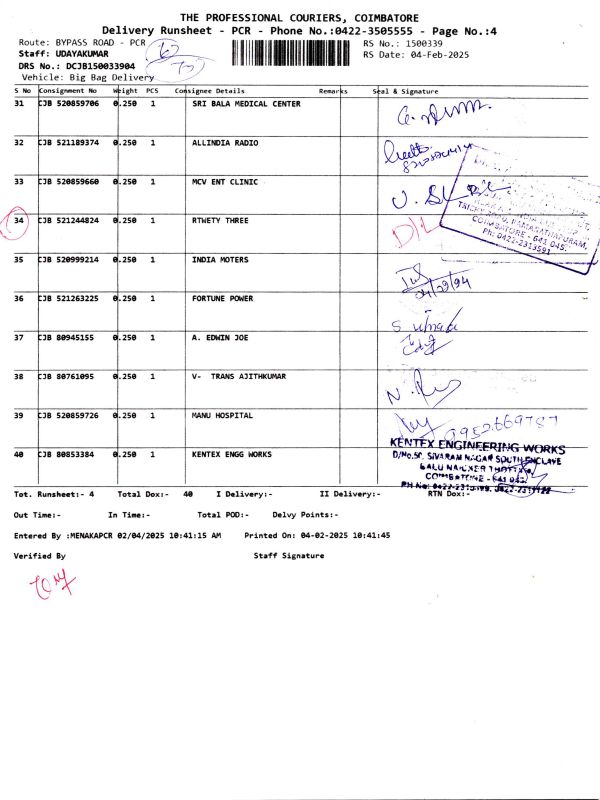 THE PROFESSIONAL COURIERS, COIMBATORE
Delivery Runsheet - PCR - Phone No.:0422-3505555 - Page No.:4
Route: BYPASS ROAD - PCR
RS No.: 1500339
Staff: UDAYAKUMAR
RS Date: 04-Feb-2025
DRS No.: DCJB150033904
Vehicle: Big Bag Delivery
S No Consignment No Weight PCS Consignee Details Remarks Seal & Signature
31 CJB 520859706 0.250 1 SRI BALA MEDICAL CENTER
32 CJB 521189374 0.250 1 ALLINDIA RADIO
33 CJB 520859660 0.250 1 MCV ENT CLINIC
34 CJB 521244824 0.250 1 RTWETY THREE D/L
RAMANATHAPURAM,
COIMBATORE - 641 045.
Ph: 0422-2313591
35 CJB 520999214 0.250 1 INDIA MOTERS
36 CJB 521263225 0.250 1 FORTUNE POWER
37 CJB 80945155 0.250 1 A. EDWIN JOE
38 CJB 80761095 0.250 1 V- TRANS AJITHKUMAR
39 CJB 520859726 0.250 1 MANU HOSPITAL 9952669787
40 CJB 80853384 0.250 1 KENTEX ENGG WORKS
KENTEX ENGINEERING WORKS
SIVARAM NAGAR SOUTH ENCLAVE
COIMBATORE - 641 045.
Tot. Runsheet:- 4 Total Dox:- 40 I Delivery:- II Delivery:- RTN Dox:-
Out Time:- In Time:- Total POD:- Delvy Points:-
Entered By :MENAKAPCR 02/04/2025 10:41:15 AM Printed On: 04-02-2025 10:41:45
Verified By Staff Signature